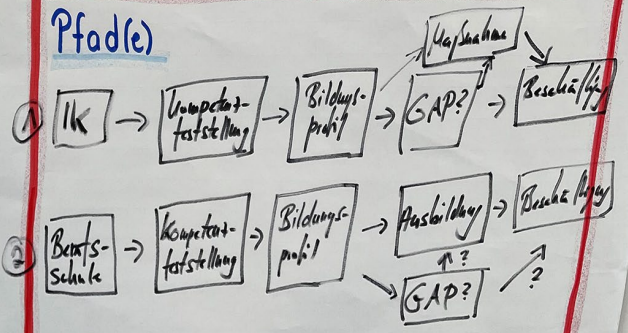 Pfad(e)
Maßnahme
1 IK → Kompetenz-
feststellung → Bildungs-
profil → GAP? → Beschäftigung
2 Berufs-
schule → Kompetenz-
feststellung → Bildungs-
profil → Ausbildung → Beschäftigung
?
GAP?
?